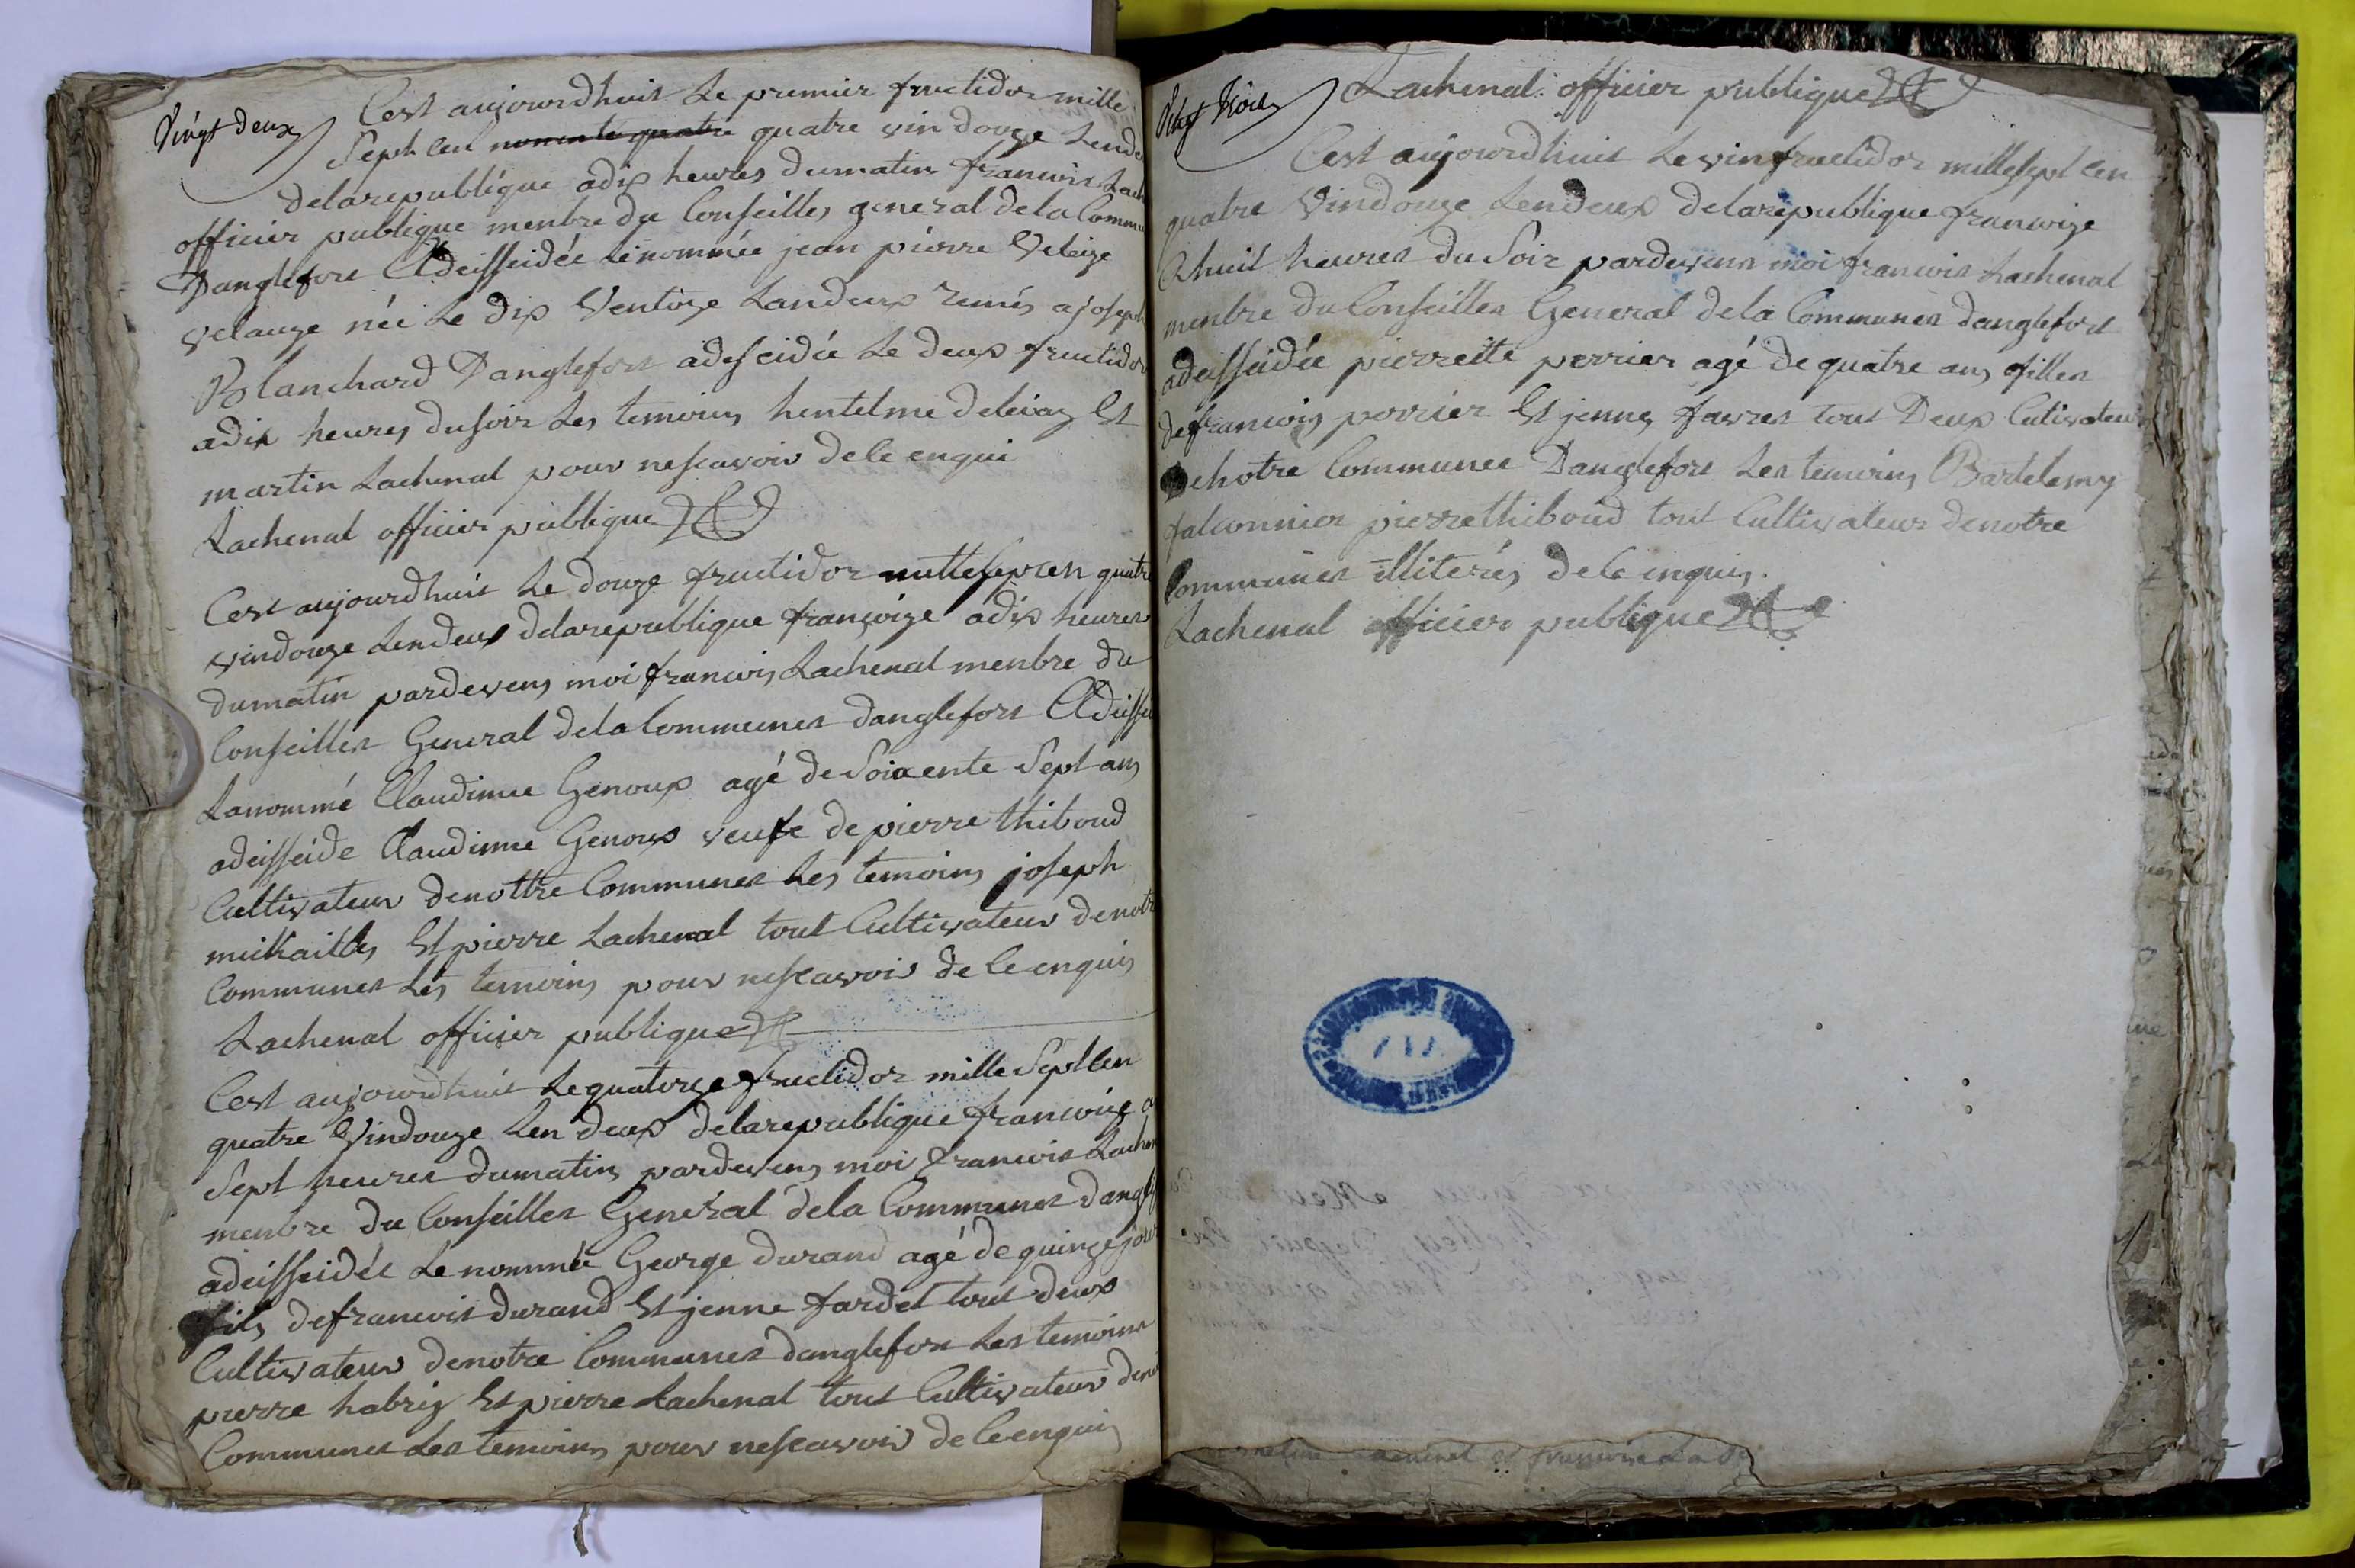 Vingt deux
Cest aujourdhuit Le premier fructidor mille
Sept cen nonente quatre quatre vin douze Lende
delarepublique adix heures dumatin francois Lach
officier publique menbre du Conseilles general dela Commu
Danglefore Adeisseidée Lenommée jean pierre Veleize
velauze née Le dix Ventoze Landeux remés a joseph
Blanchard Danglefort adeseidée Le deux fructidor
adix heures dusoir Les temoins hentelme deleiaz Et
martin Lachenal pour nescavoir dele enqui
Lachenal officier publique
Cest aujourdhuit Le douze fructidor millesepcen quatre
vindouze Lendeux delarepublique françoize adix heures
dumatin pardevens moi francois Lachenal menbre du
Conseilles General dela Communes danglefort Adeissei
Lanommé Claudinne Genoux agé de Soixente Sept ans
adeisseide Claudinne Genoux veufe de pierre thiboud
Cultivateur denottre Communes Les temoins joseph
Et pierre Lachenal tout Cultivateur denotre
Communes Les temoins pour nescavoir de le enquis
Lachenal officier publique
Cest aujourdhuit Lequatorze fructidor mille Sept Cen
quatre Vindouze Len deux delarepublique francoize a
Sept heures dumatin pardevens moi francois Lachen
menbre du Conseilles General dela Communes danglef
adeisseidée Le nommée George durand agé de quinze jour
fils defrancois durand Et jenne fardel tout deux
Cultivateur denotre Communes danglefort Les temoins
pierre habriz Et pierre Lachenal tout Cultivateur deno
Communes Les temoins pour nescavoir de le enquis
Vingt trois
Lachenal officier publique
Cest aujourdhuit Le vin fructidor millesept cen
quatre Vindouze Lendeux delarepublique francoize
Ahuit heures du Soir pardevens moi francois Lachenal
menbre du Conseilles General dela Communes danglefort
adeisseidée pierrette perrier agé de quatre ans filles
defrancois perrier Et jenne favres tout Deux Cutivateur
de notre Communes Danglefort Les temoins Bartelemy
falconnier pierrethiboud tout Cultivateur denotre
Communes illiterés de le enquis.
Lachenal officier publique